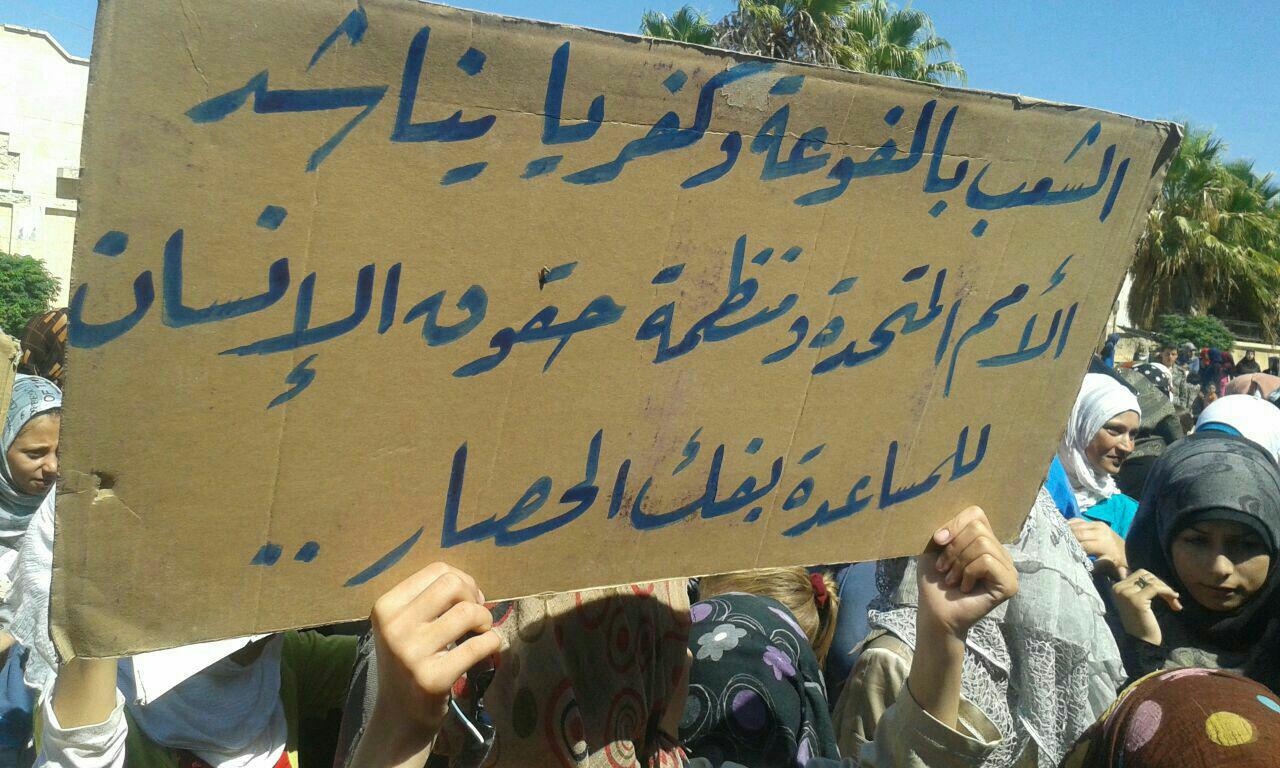 الشعب بالفوعة وكفريا يناشد
الأمم المتحدة ومنظمة حقوق الإنسان
للمساعدة بفك الحصار ..